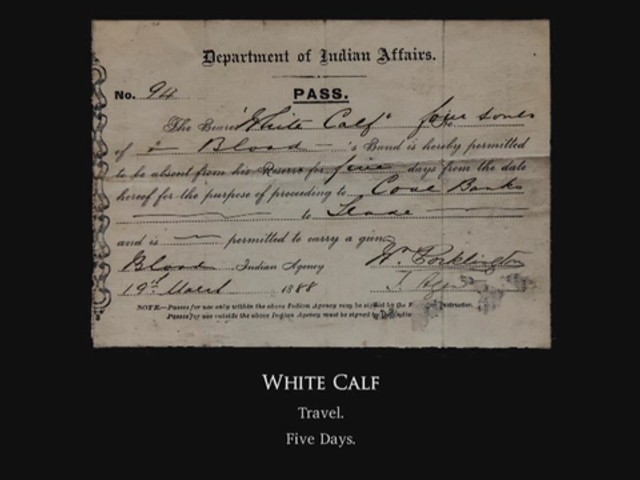 Department of Indian Affairs.
No. 94
PASS.
The Bearer "White Calf" four souls
of a Blood 's Band is hereby permitted
to be absent from his Reserve for five days from the date
hereof for the purpose of proceeding to Coal Banks
to
and is permitted to carry a gun.
Blood Indian Agency Wm. Pocklington
19th March 1888
NOTE.—Passes for use only within the above Indian Agency may be signed by the Instructor.
Passes for use outside the above Indian Agency must be signed by
WHITE CALF
Travel.
Five Days.